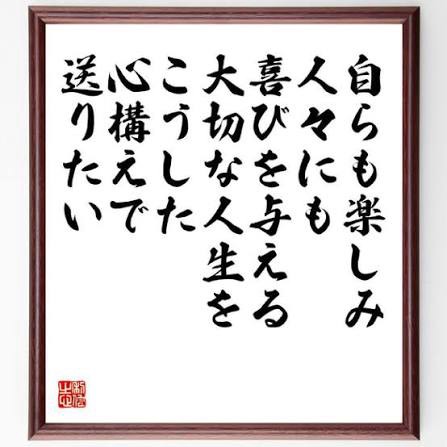 自らも楽しみ
人々にも
喜びを与える
大切な人生を
こうした
心構えで
送りたい